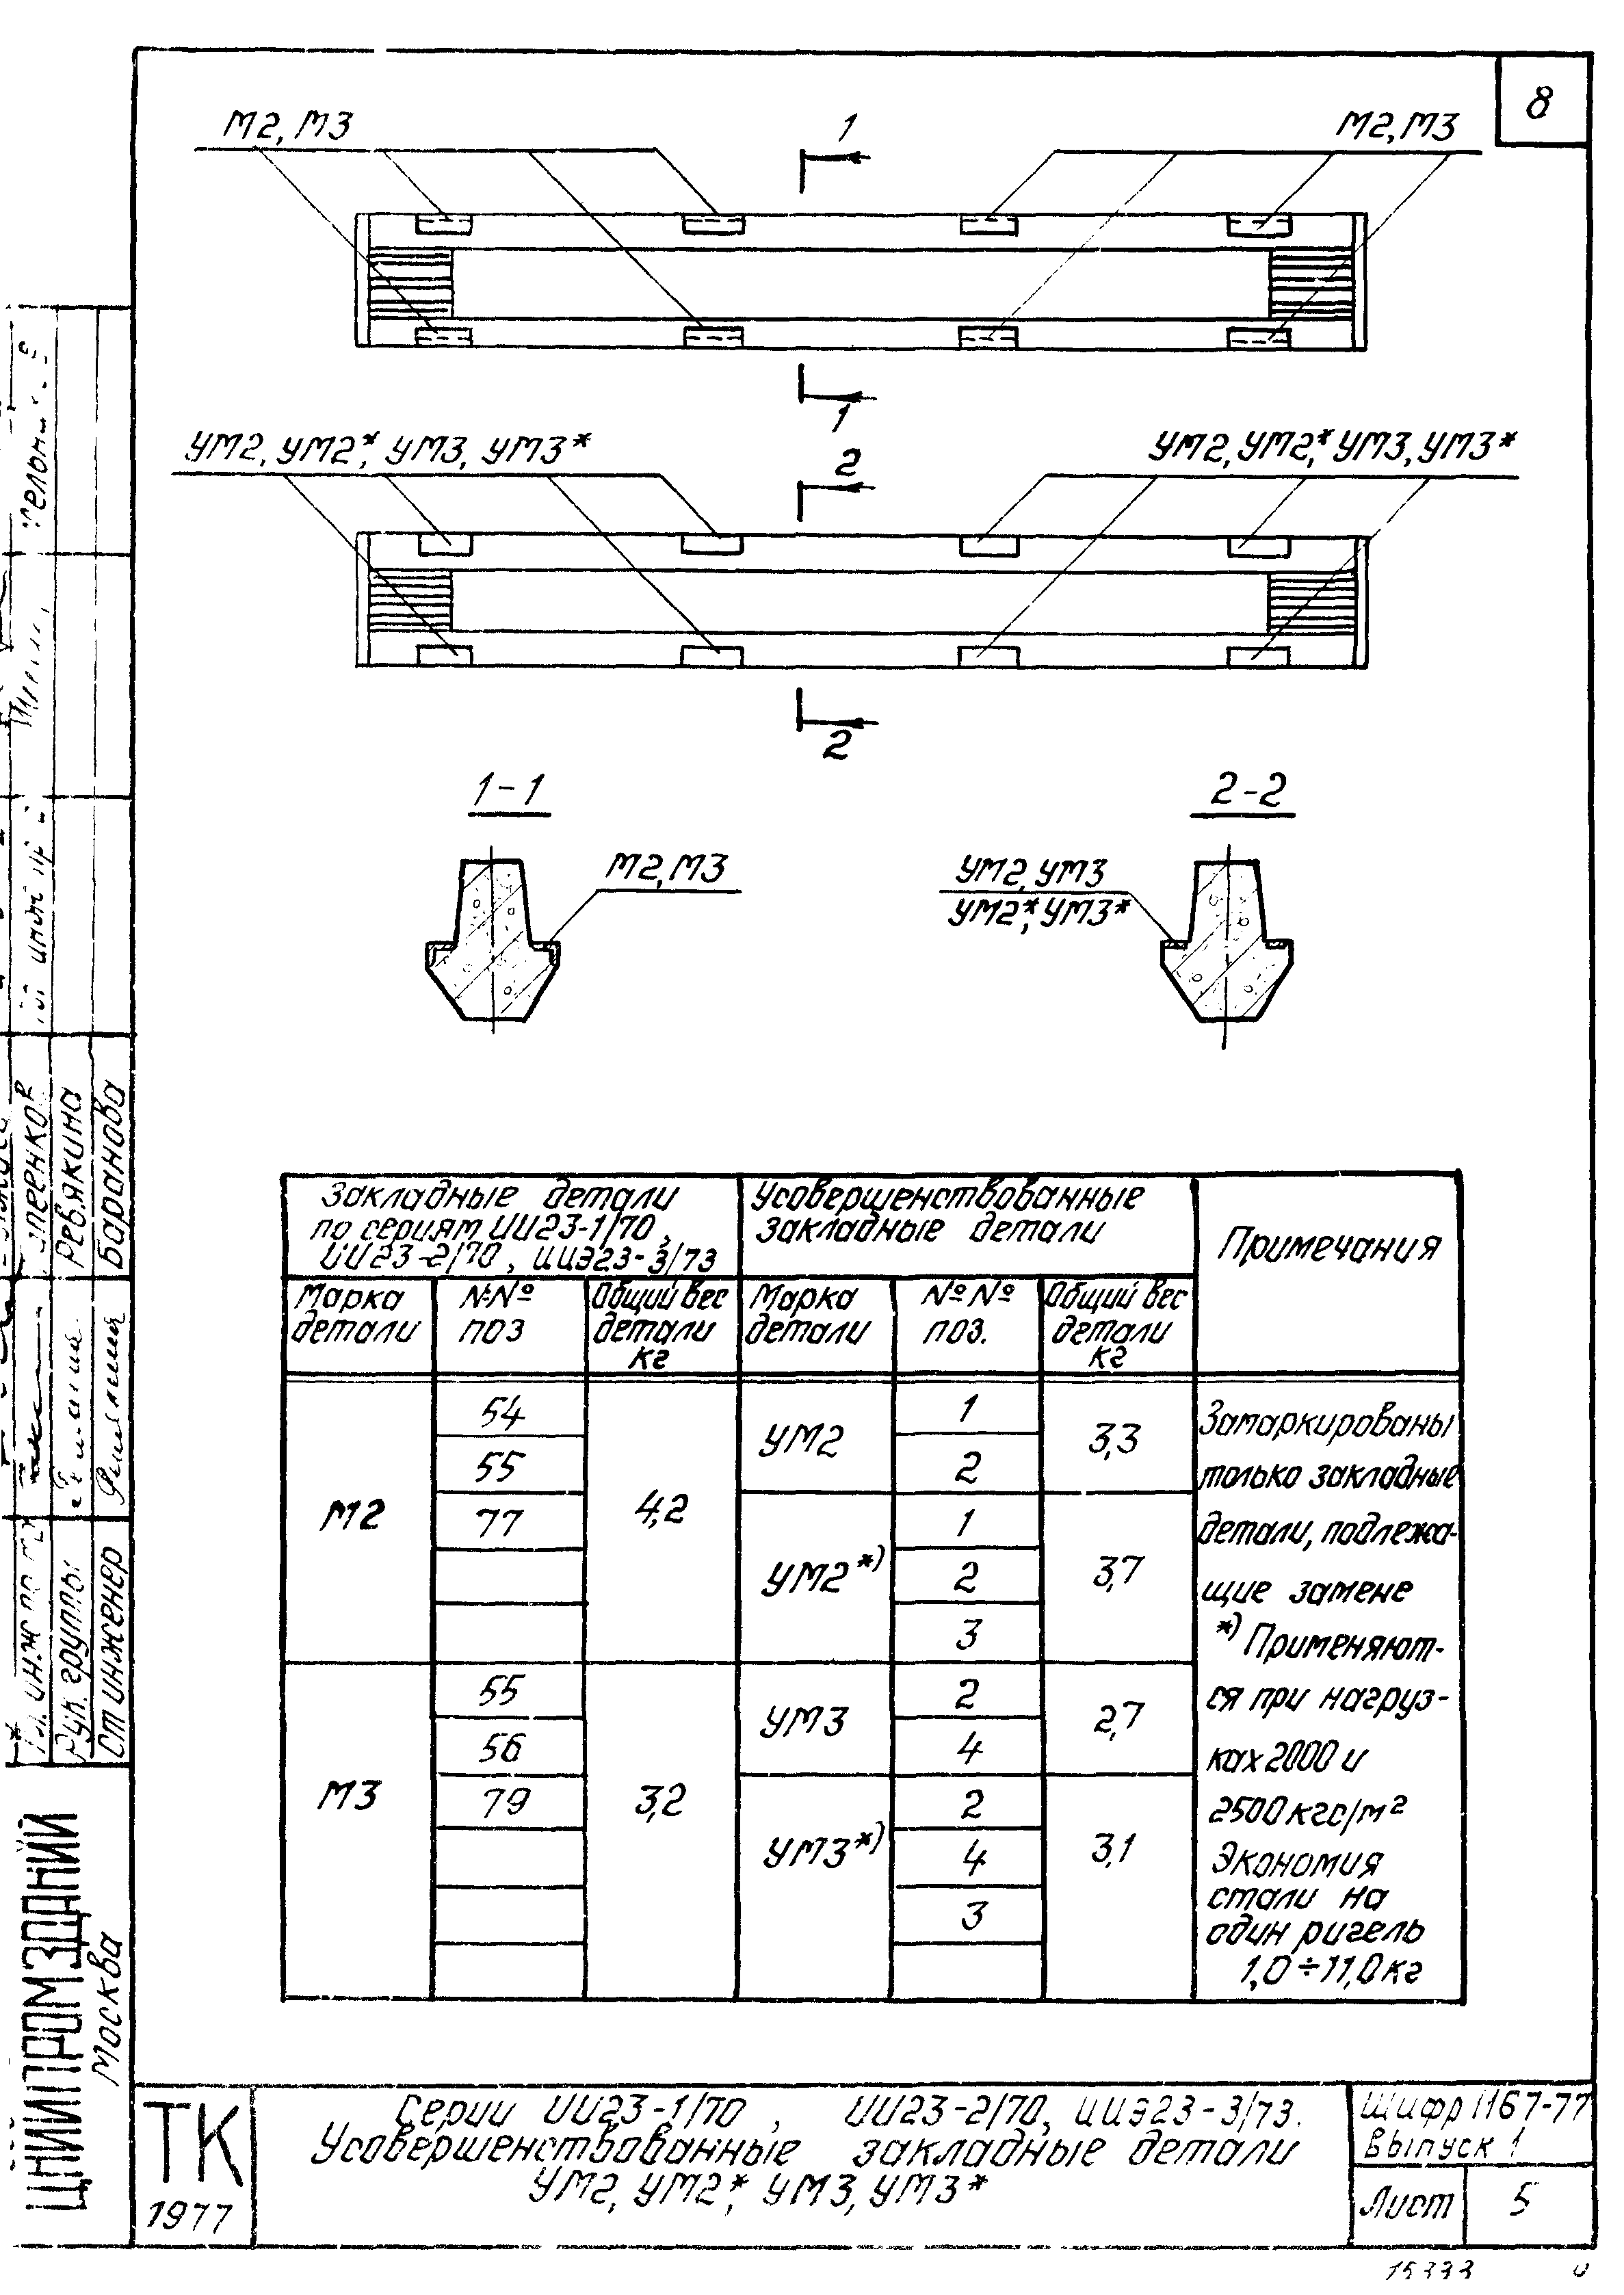 8
М2, М3
1
М2, М3
1
УМ2, УМ2*, УМ3, УМ3*
2
УМ2, УМ2*, УМ3, УМ3*
2
1-1
2-2
М2, М3
УМ2, УМ3
УМ2*, УМ3*
Закладные детали
по сериям ИИ23-1/70,
ИИ23-2/70, ИИЭ23-3/73
Усовершенствованные
закладные детали
Примечания
Марка
детали
№№
поз
Общий вес
детали
кг
Марка
детали
№ №
поз.
Общий вес
детали
кг
М2
54
55
77
4,2
УМ2
1
2
3,3
УМ2*)
1
2
3
3,7
М3
55
56
79
3,2
УМ3
2
4
2,7
УМ3*)
2
4
3
3,1
Замаркированы
только закладные
детали, подлежа-
щие замене
*) Применяют-
ся при нагруз-
ках 2000 и
2500 кгс/м²
Экономия
стали на
один ригель
1,0÷11,0 кг
ТК
1977
Серии ИИ23-1/70, ИИ23-2/70, ИИЭ23-3/73.
Усовершенствованные закладные детали
УМ2, УМ2*, УМ3, УМ3*
Шифр 1167-77
Выпуск 1
Лист
5
Рук. группы
Ревякина
Ст инженер
Баранова
ЦНИИПРОМЗДАНИЙ
Москва